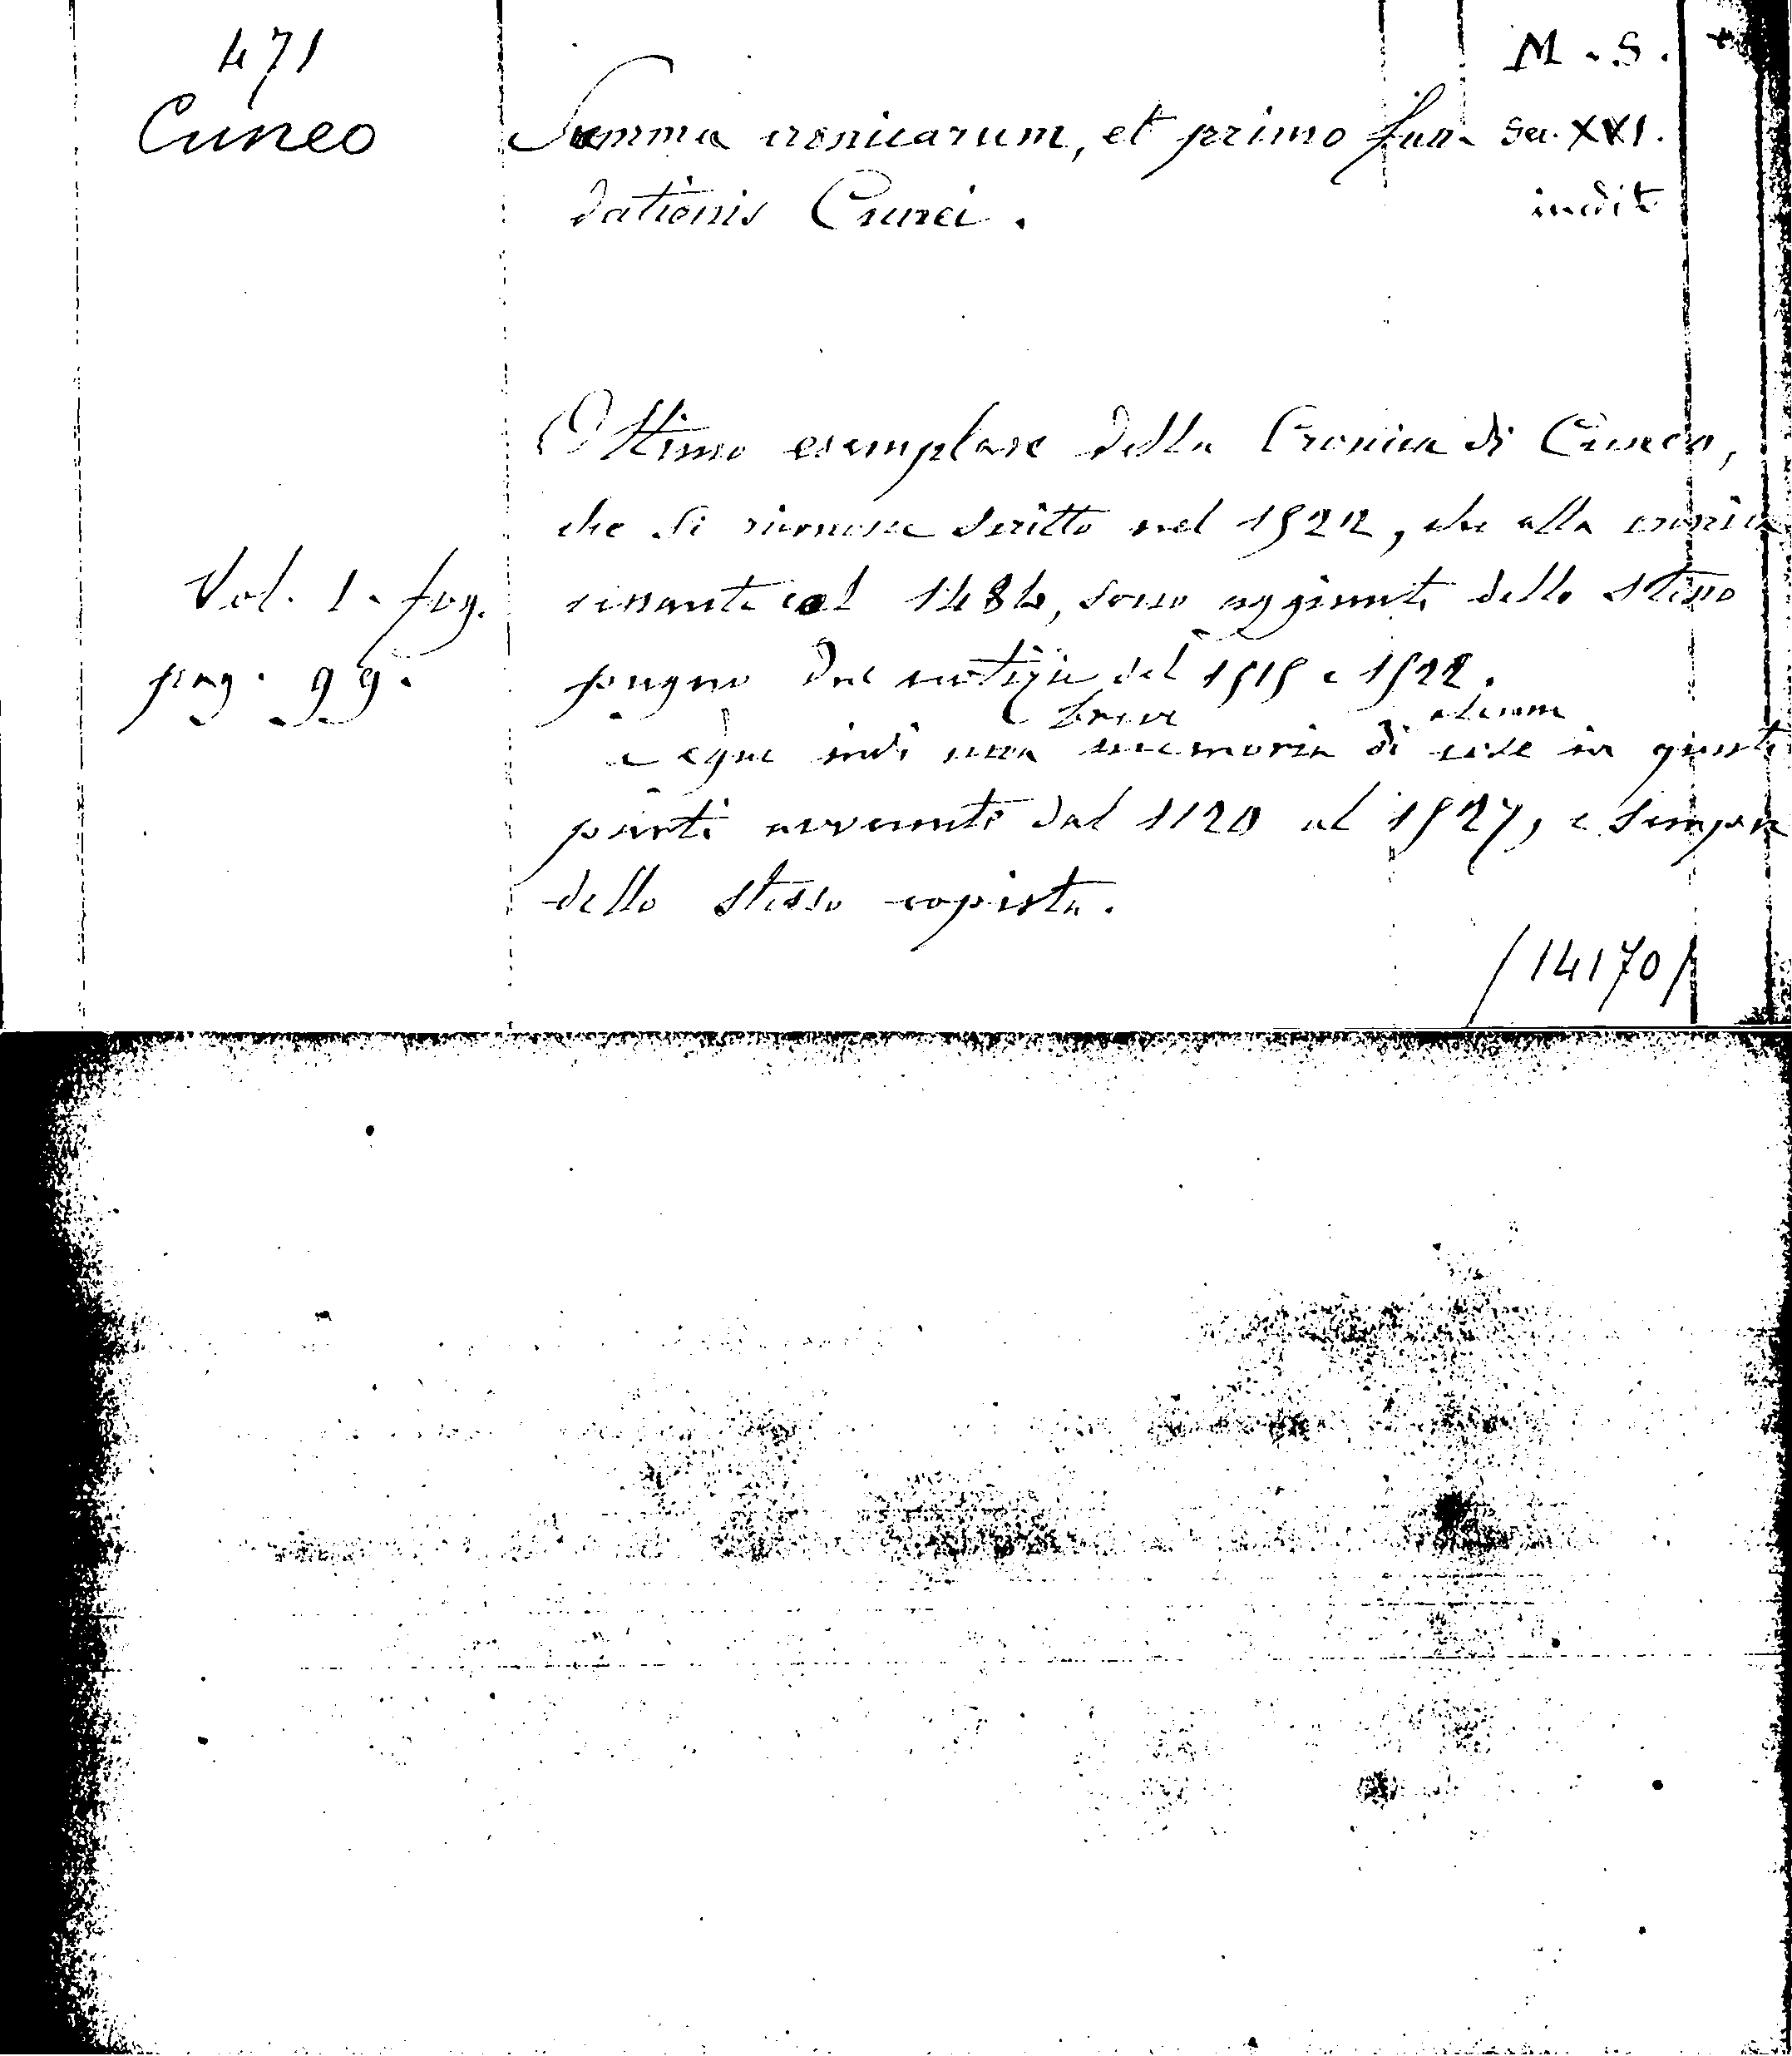 471
M. S.
Cuneo
Summa cronicarum, et primo fun-
Sec. XVI.
dationis Cunei.
inedit
Ottimo esemplare della Cronica di Cuneo,
che si riconosce scritto nel 1522, che alla cronica
Vol. 1. fog.
al 1484, sono aggiunte dello stesso
pag. 99.
pugno due notizie del 1515 e 1522.
breve alcune
segue indi una memoria di cose in queste
parti avvenute dal 1120 al 1527, e sempre
dello stesso copista.
/14170/